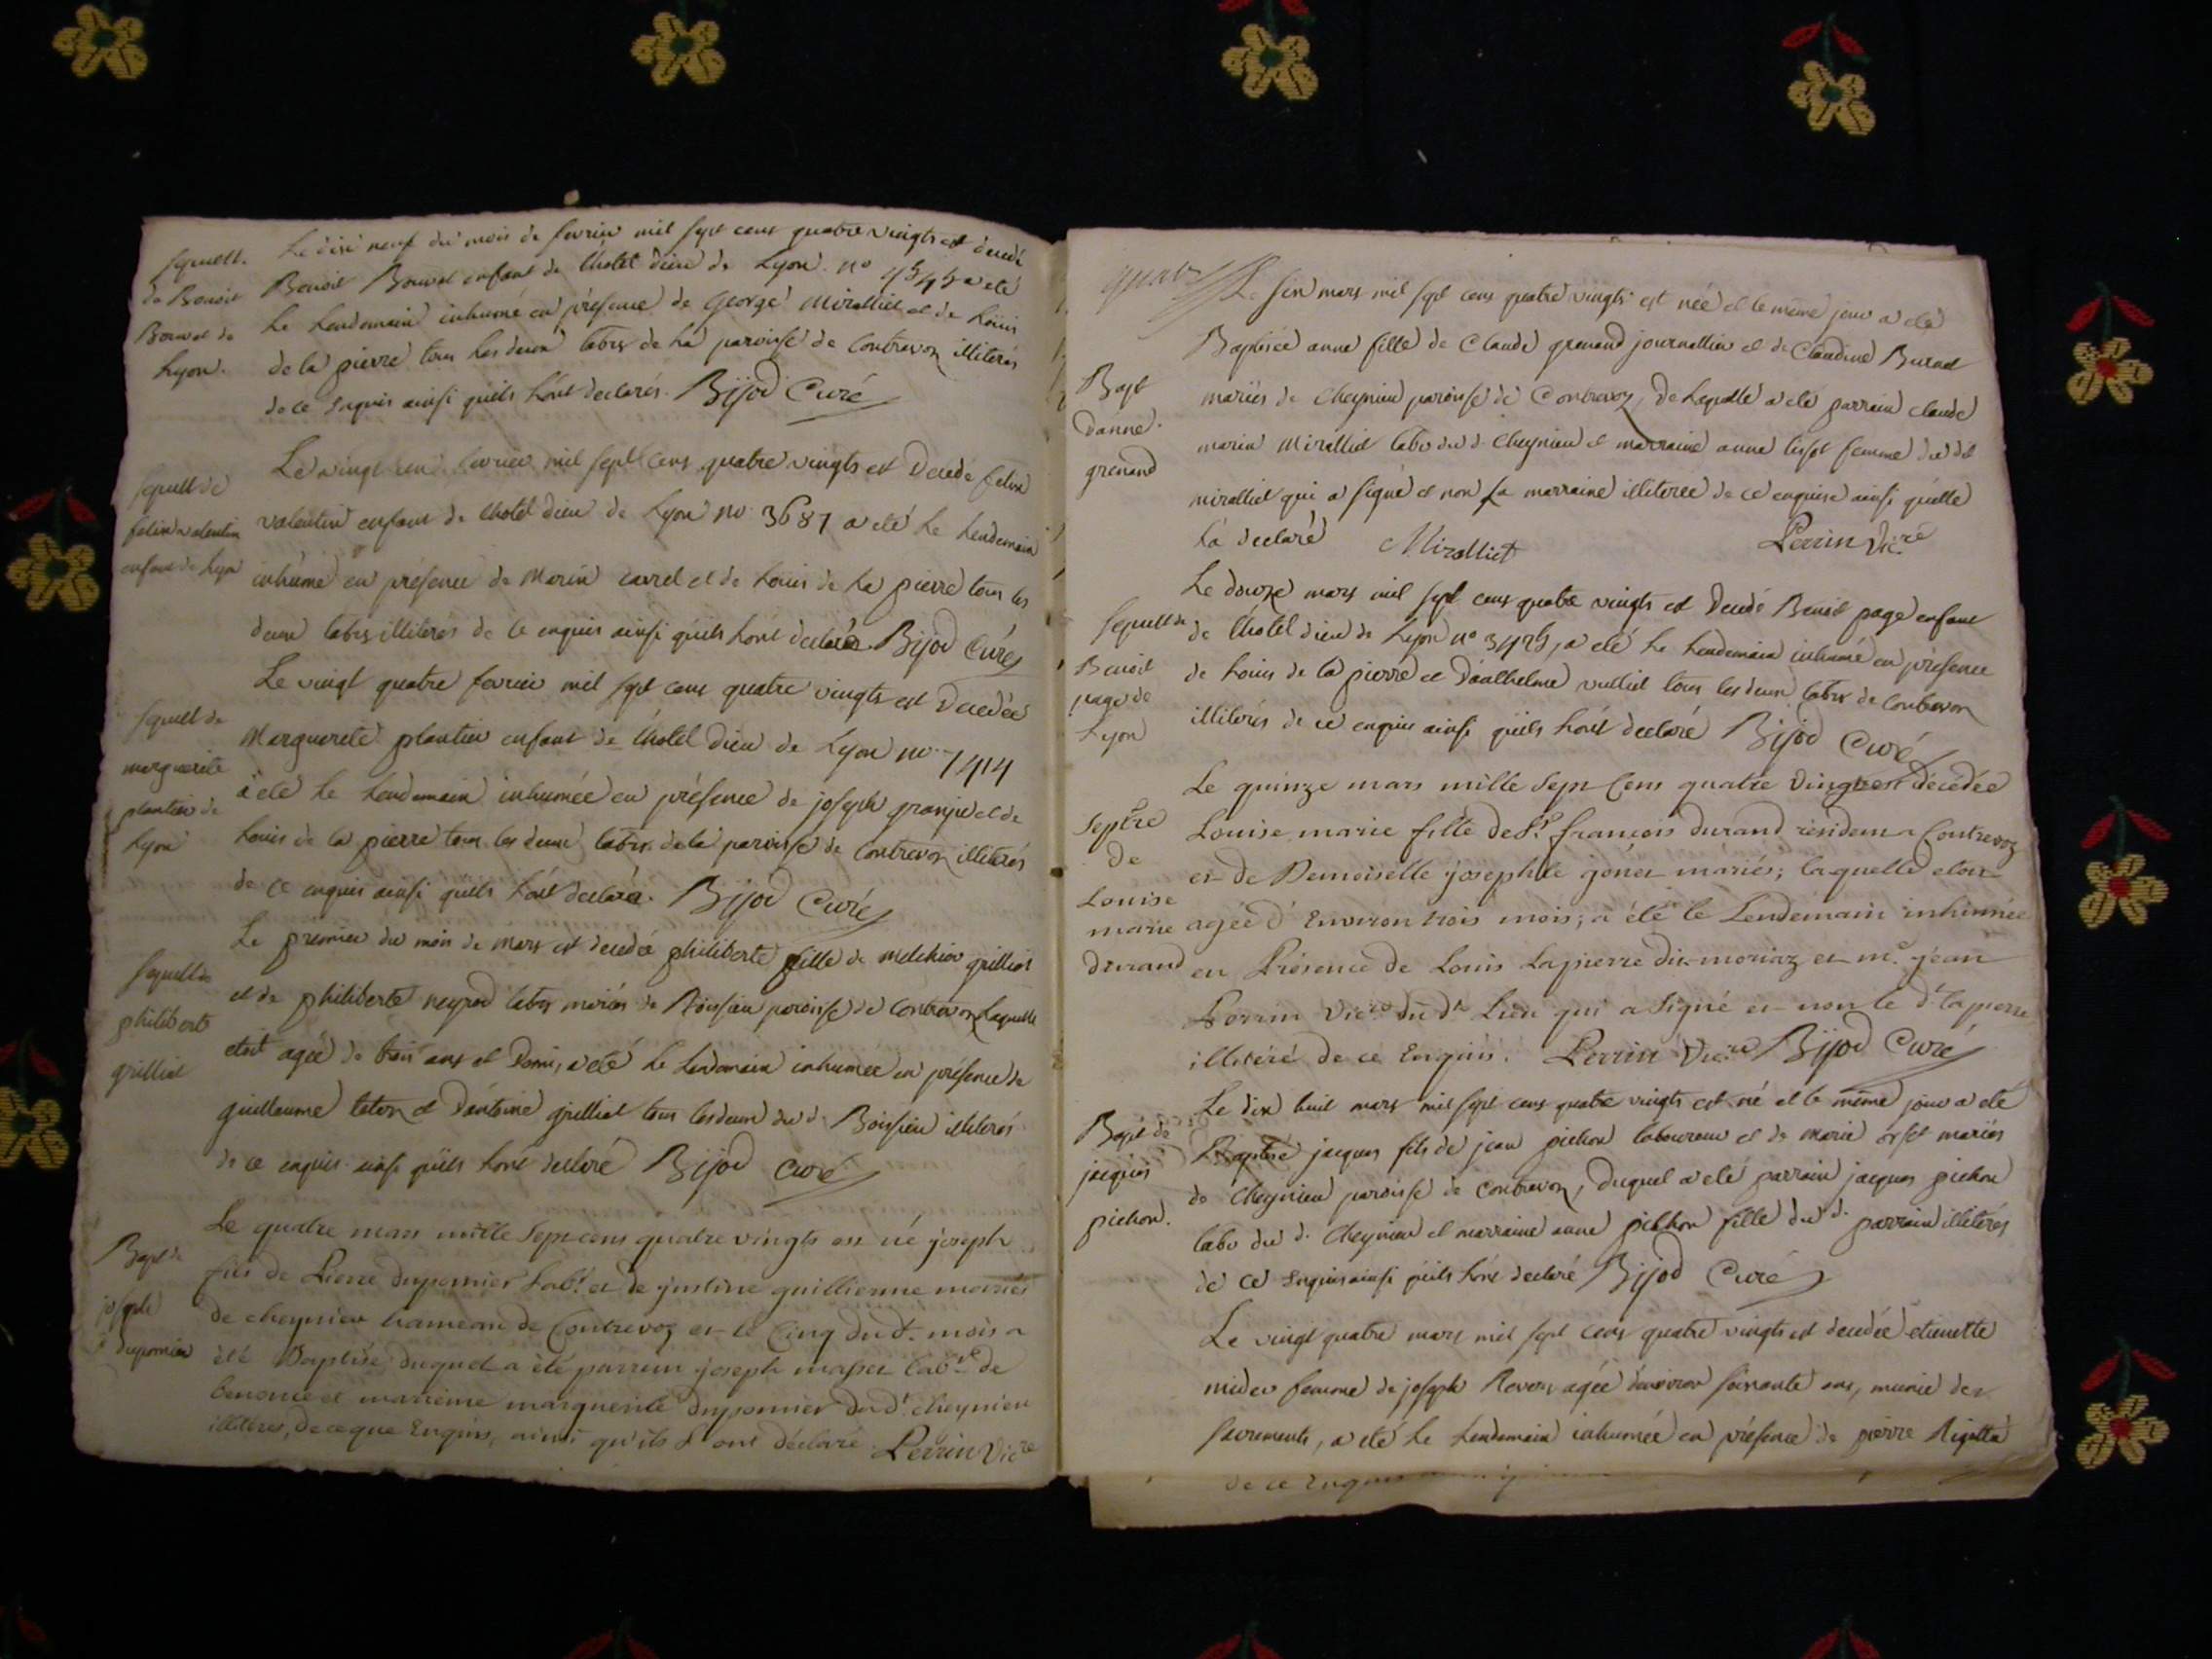 sepult.
de Benoit
Bouvat de
Lyon.
Le dixi neuf du mois de fevrier mil sept cens quatre vingts est decedé
Benoit Bouvat enfant de l'hotel dieu de Lyon no 4545 a eté
le lendemain inhumé en présence de George Miralliet et de Louis
de la pierre tous les deux labrs de la paroisse de Contrevoz illiterés
de ce enquis ainsi quils l'ont declarés. Bijod Curé
sepult de
felix valentin
enfant de Lyon
Le vingt un fevrier mil sept cens quatre vingts est Decedé felix
valentin enfant de l'hotel dieu de Lyon no 3687 a eté le lendemain
inhumé en présence de Marin carrel et de Louis de la pierre tous les
deux labrs illiterés de ce enquis ainsi quils l'ont declaré. Bijod Curé
sepult de
marguerite
plantin de
Lyon
Le vingt quatre fevrier mil sept cens quatre vingts est Decedée
Marguerite plantin enfant de l'hotel Dieu de Lyon no 7414
a eté le lendemain inhumée en présence de joseph granjet et de
Louis de la pierre tous les deux labrs de la paroisse de Contrevoz illiterés
de ce enquis ainsi quils l'ont declaré. Bijod Curé
sepult de
philiberte
grilliet
Le premier du mois de mars est decedée philiberte fille de melchior grilliet
et de philiberte neyrod labrs mariés de Boissieu paroisse de Contrevoz Laquelle
etoit agée de trois ans et Demi, a eté le Lendemain inhumée en présence de
guillaume teton et D'antoine grilliet tous les deux du d. Boissieu illiterés
de ce enquis ainsi quils l'ont declaré Bijod curé
Bapt de
joseph
duponier
Le quatre mars mille sept cens quatre vingts est né joseph
fils de Pierre duponnier Labr. et de justine guillienne mariés
de cheynieu hameau de Contrevoz et le Cinq du d. mois a
été Baptisé duquel a été parrain joseph masset Labre de
benonce et marreine marguerite duponnier du dt cheynieu
illiteres, de ce que Enquis, ainsi qu'ils l'ont déclaré. Perrin Vicre
Bapt
d'anne
grenand
Le six mars mil sept cens quatre vingts est née et le même jour a eté
Baptisée anne fille de Claude grenand journallier et de Claudine Burnet
mariés de Cheynieu paroisse de Contrevoz, de Laquelle a eté parrain claude
marin Miralliet labr du d. Cheynieu et marraine anne tissot femme du dt
miralliet qui a signé et non sa marraine illiterée de ce enquise ainsi quelle
l'a declaré Miralliet Perrin Vicre
Sepult de
Benoit
page de
Lyon
Le douze mars mil sept cens quatre vingts est Decedé Benoit page enfant
de l'hotel dieu de Lyon no 3475, a eté le lendemain inhumé en présence
de Louis de la pierre et d'anthelme vulliet tous les deux labrs de Contrevoz
illiterés de ce enquis ainsi quils l'ont declaré Bijod Curé
Septre
de
Louise
marie
durand
Le quinze mars mille Sept Cens quatre Vingt est décédée
Louise marie fille de Sr françois durand résident a Contrevoz
et de Demoiselle josephte génet mariés; laquelle etoit
agée d'Environ trois mois; a été le Lendemain inhumée
en Présence de Louis Lapierre dit moriaz et me jean
Perrin Vicre du dt Lieu qui a signé et non le dt lapierre
illitéré de ce Enquis. Perrin Vicre Bijod Curé
Bapt de
jacques
pichon.
Le dix huit mars mil sept cens quatre vingts est né et le même jour a eté
Baptisé jacques fils de jean pichon laboureur et de Marie orset mariés
de Cheynieu paroisse de Contrevoz, duquel a eté parrain jacques pichon
labr du d. Cheynieu et marraine anne pichon fille du d. parrain illiterés
de ce Enquis ainsi quils l'ont declaré Bijod Curé
Le vingt quatre mars mil sept cens quatre vingts est decedée etiennette
femme de joseph Revers agée d'environ soixante ans, munie des
sacrements, a eté le lendemain inhumée en présence de pierre Rigollet
de ce Enquis